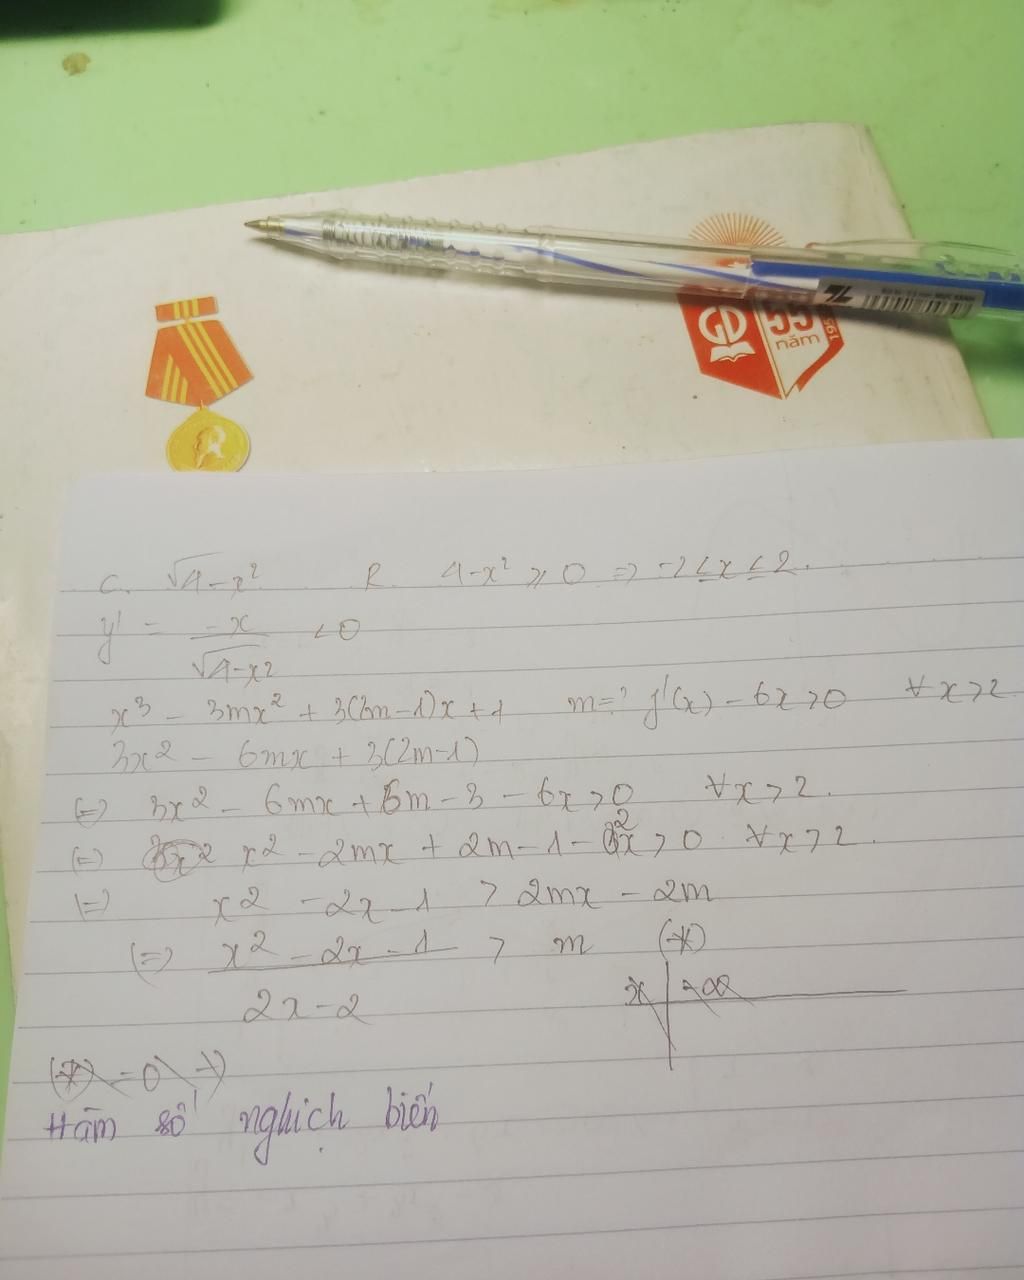 GD 55
năm
C. √4-x² R. 4-x² ⩾ 0 => -2 ≤ x ≤ 2.
y' = -x / √4-x² < 0
x³ - 3mx² + 3(2m-1)x + 1 m=? f'(x) - 6x > 0 ∀x > 2
3x² - 6mx + 3(2m-1)
(=) 3x² - 6mx + 6m - 3 - 6x > 0 ∀x > 2.
(=) x² - 2mx + 2m - 1 - 2x > 0 ∀x > 2.
(=) x² - 2x - 1 > 2mx - 2m
(=) x² - 2x - 1 / 2x - 2 > m (*)
x -∞
(*) = 0
Hàm số nghịch biến